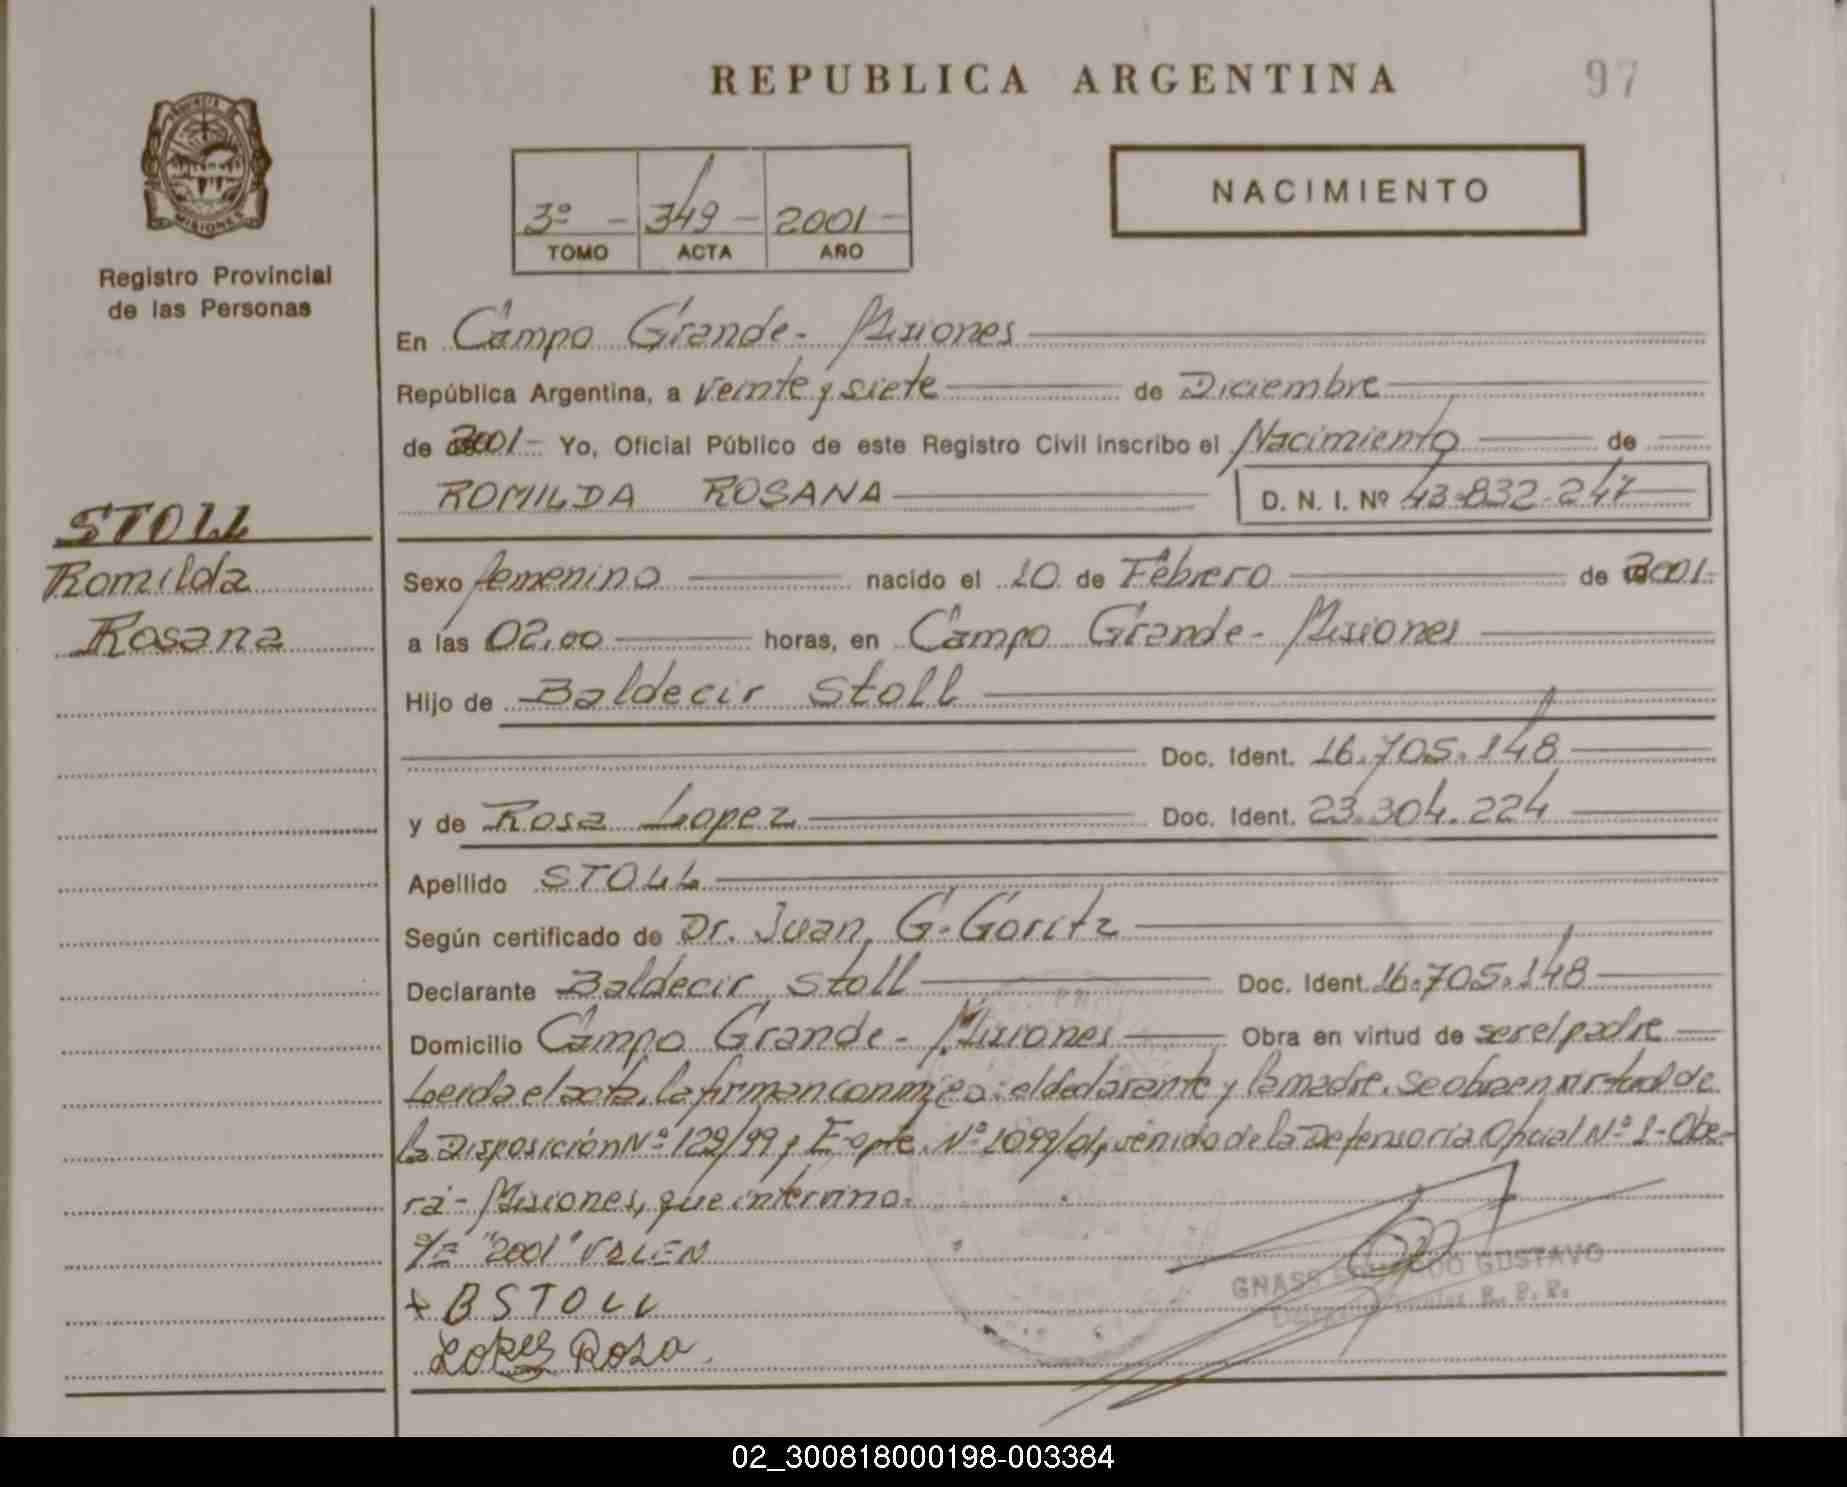 REPUBLICA ARGENTINA
97
PROVINCIA
MISIONES
Registro Provincial
de las Personas
3º - 349 - 2001 -
TOMO ACTA AÑO
NACIMIENTO
En Campo Grande - Misiones
República Argentina, a Veinte y siete de Diciembre
de 2001 - Yo, Oficial Público de este Registro Civil inscribo el Nacimiento de
ROMILDA ROSANA D. N. I. Nº 43.832.247
STOLL
Romilda
Rosana
Sexo femenino nacido el 10 de Febrero de 2001 -
a las 02,00 horas, en Campo Grande - Misiones
Hijo de Baldecir Stoll
Doc. Ident. 16.705.148
y de Rosa Lopez Doc. Ident. 23.304.224
Apellido STOLL
Según certificado de Dr. Juan G. Goritz
Declarante Baldecir Stoll Doc. Ident. 16.705.148
Domicilio Campo Grande - Misiones Obra en virtud de ser el padre
Leida el acta, la firman conmigo: el declarante y la madre. Se obra en virtud de
la Disposición Nº 129/99 y Expte. Nº 1099/01, venido de la Defensoría Oficial Nº 1 - Obe-
rá - Misiones, que intervino.
s/e "2001" VALEN
+ B STOLL
Lopez Rosa
GNASS GUSTAVO
R. P. P.
02_300818000198-003384